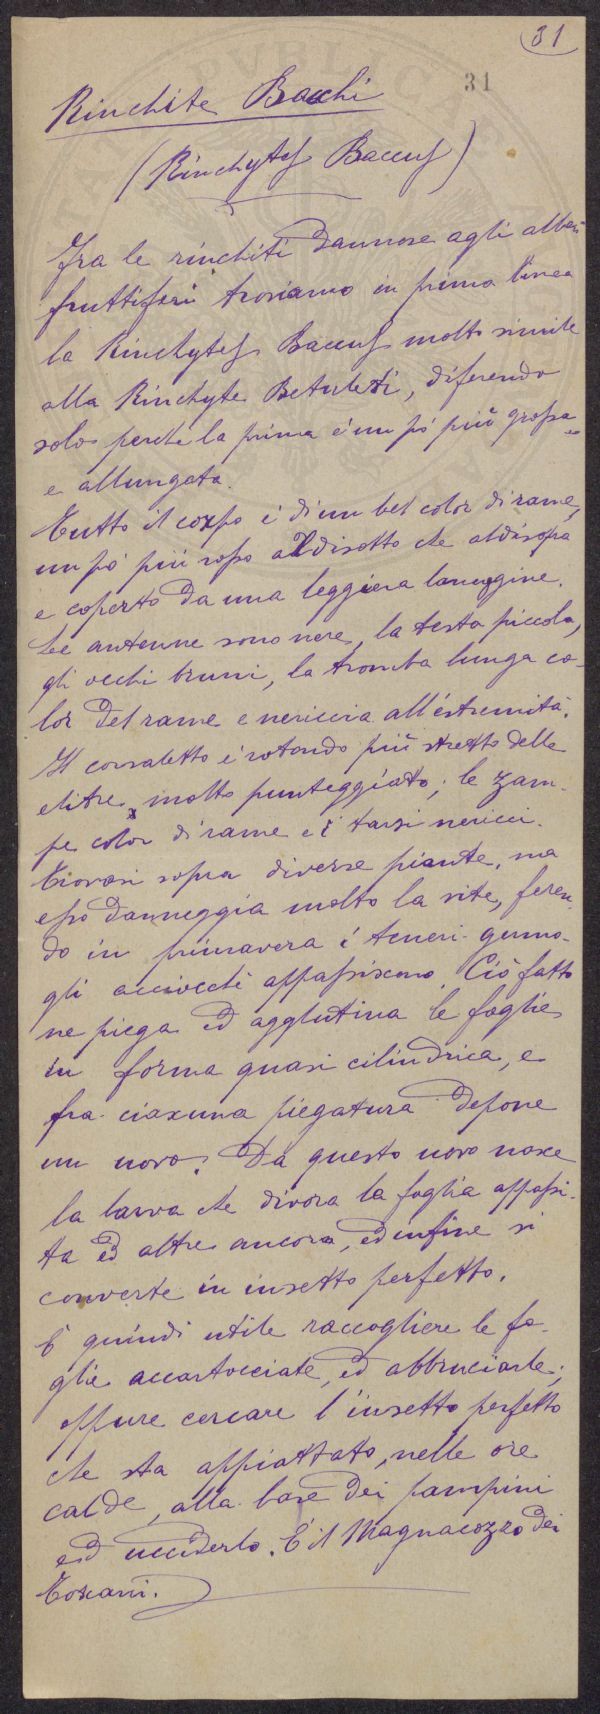 31
31
Rinchite Bacchi
(Rinchytes Baccus)
Fra le rinchiti dannose agli alberi
fruttiferi troviamo in prima linea
la Rinchytes Baccus molto simile
alla Rinchyte Betuleti, diferendo
solo perche la prima é un pó piú grossa
e allungata.
Tutto il corpo é di un bel color di rame,
un pó piú rosso al disotto che aldisopra
e coperto da una leggiera lanuggine.
Le antenne sono nere, la testa piccola,
gli occhi bruni, la tromba lunga co-
lor del rame e nericcia all'estremitá.
Il corsaletto é rotondo piú stretto delle
elitre, molto punteggiato; le zam-
pe color di rame e i tarsi nericci.
Trovasi sopra diverse piante, ma
esso danneggia molto la vite, feren-
do in primavera i teneri germo-
gli acciocché appassiscono. Ció fatto
ne piega ed agglutina le foglie
in forma quasi cilindrica, e
fra ciascuna piegatura depone
un uovo. Da questo uovo nasce
la larva che divora la foglia appassi-
ta ed altre ancora, ed infine si
converte in insetto perfetto.
É quindi utile raccogliere le fo-
glie accartocciate, ed abbruciarle;
oppure cercare l'insetto perfetto
che sta appiattato, nelle ore
calde, alla base dei pampini
ed ucciderlo. É il Magnacozzo dei
Toscani.